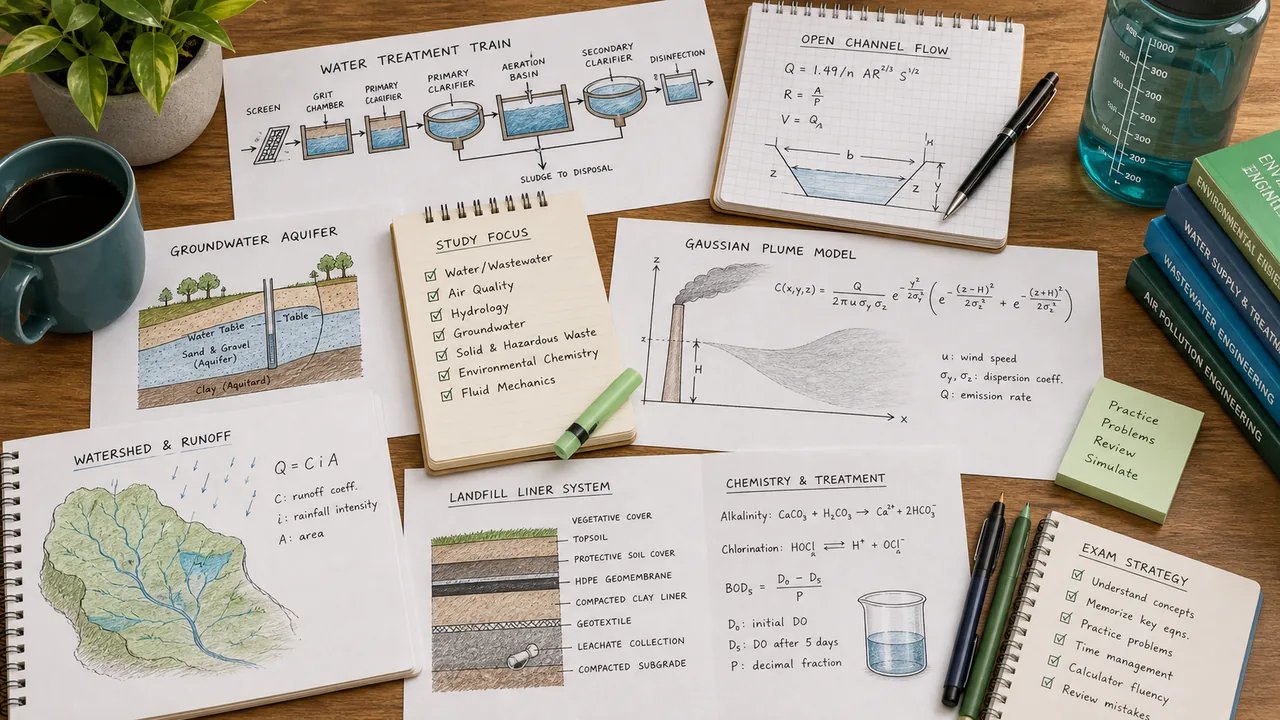 WATER TREATMENT TRAIN
SCREEN
GRIT
CHAMBER
PRIMARY
CLARIFIER
PRIMARY
CLARIFIER
AERATION
BASIN
SECONDARY
CLARIFIER
DISINFECTION
SLUDGE TO DISPOSAL
OPEN CHANNEL FLOW
Q = 1.49/n AR^2/3 S^1/2
R = A/P
V = Q_A
b
z
z
y
H
1000
300
400
200
200
ENVIRONMENTAL ENGINE
WATER SUPPLY & TREATM
WASTEWATER ENGINEERING
AIR POLLUTION ENGINEERING
GROUNDWATER AQUIFER
Water Table
Table
Sand & Gravel
(Aquifer)
Clay (Aquitard)
STUDY FOCUS
Water/Wastewater
Air Quality
Hydrology
Groundwater
Solid & Hazardous Waste
Environmental Chemistry
Fluid Mechanics
GAUSSIAN PLUME MODEL
z
C(x,y,z) = Q / 2πuσyσz e^-y²/2σz² (e^-(z-H)²/2σz² + e^-(z+H)²/2σz²)
z
H
x
u: wind speed
σy, σz: dispersion coeff.
Q: emission rate
Practice
Problems
Review
Simulate
WATERSHED & RUNOFF
Q = C i A
C: runoff coeff.
i: rainfall intensity
A: area
LANDFILL LINER SYSTEM
VEGETATIVE COVER
TOPSOIL
PROTECTIVE SOIL COVER
HDPE GEOMEMBRANE
COMPACTED CLAY LINER
GEOTEXTILE
LEACHATE COLLECTION
COMPACTED SUBGRADE
CHEMISTRY & TREATMENT
Alkalinity: CaCO₃ + H₂CO₃ → Ca²⁺ + 2HCO₃⁻
Chlorination: HOCl ⇌ H⁺ + OCl⁻
BOD₅ = D₀ - D₅ / P
D₀: initial DO
D₅: DO after 5 days
P: decimal fraction
EXAM STRATEGY
Understand concepts
Memorize key eqns.
Practice problems
Time management
Calculator fluency
Review mistakes